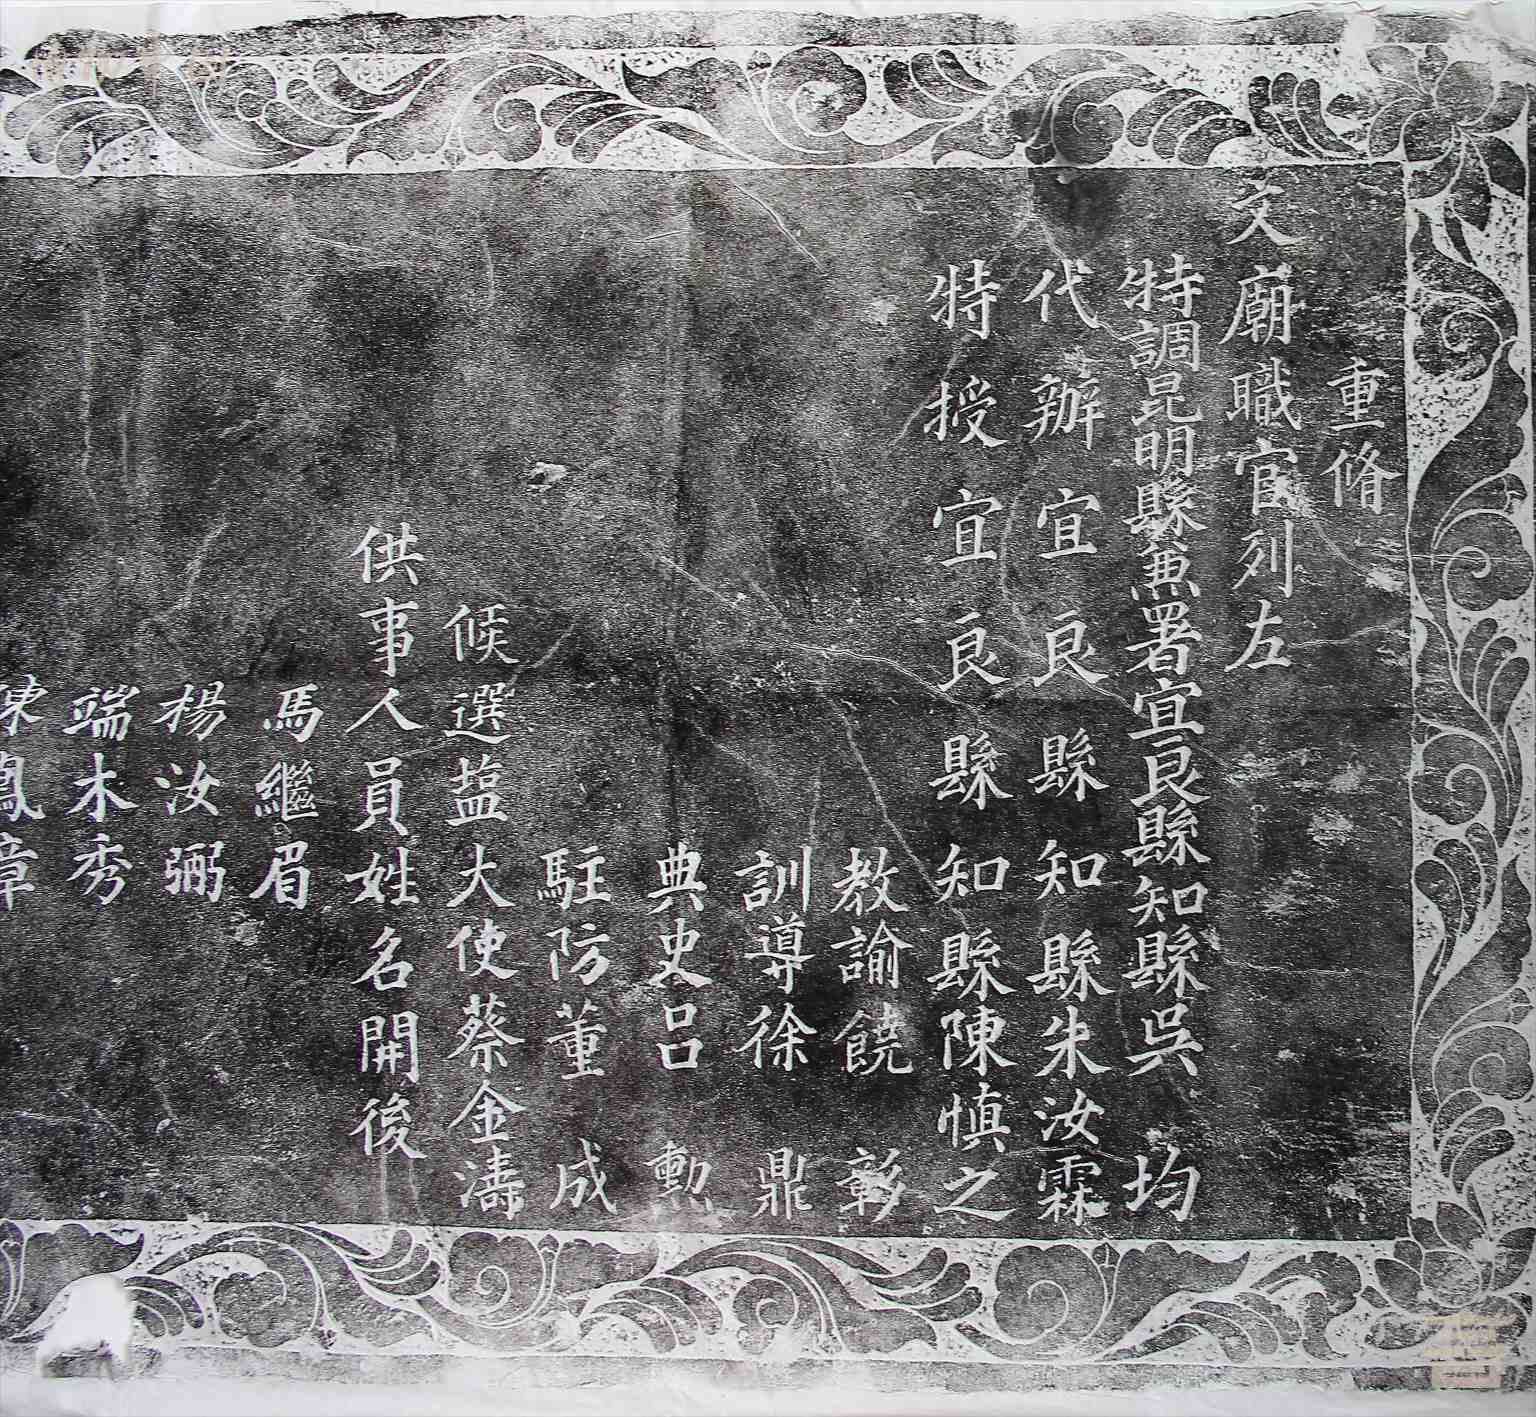 重脩
文廟職官列左
特調昆明縣兼署宜良縣知縣吳均
代辦宜良縣知縣朱汝霖
特授宜良縣知縣陳慎之
教諭饒彰
訓導徐鼎
典史呂勲
駐防董成
候選塩大使蔡金濤
供事人員姓名開後
馬繼眉
楊汝弼
端木秀
陳鳳章